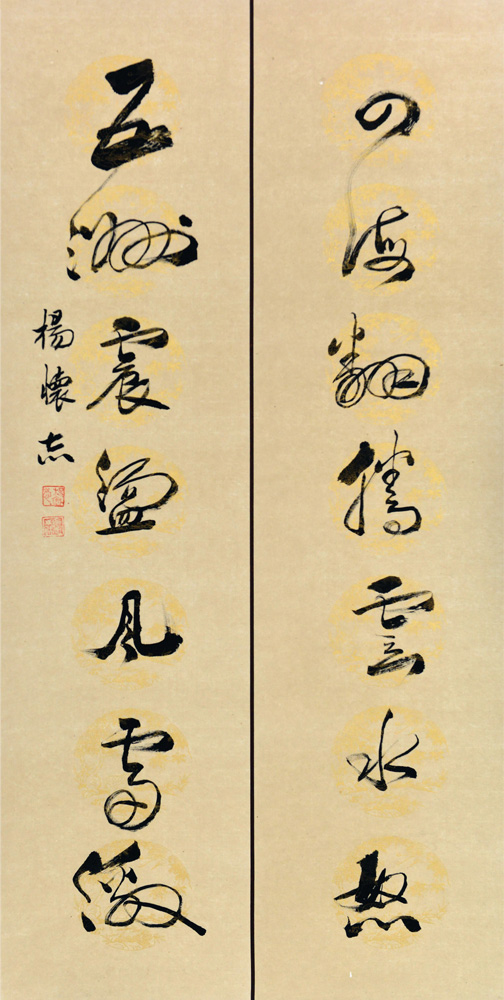 四海翻騰雲水怒
五洲震盪風雷激
楊懷志